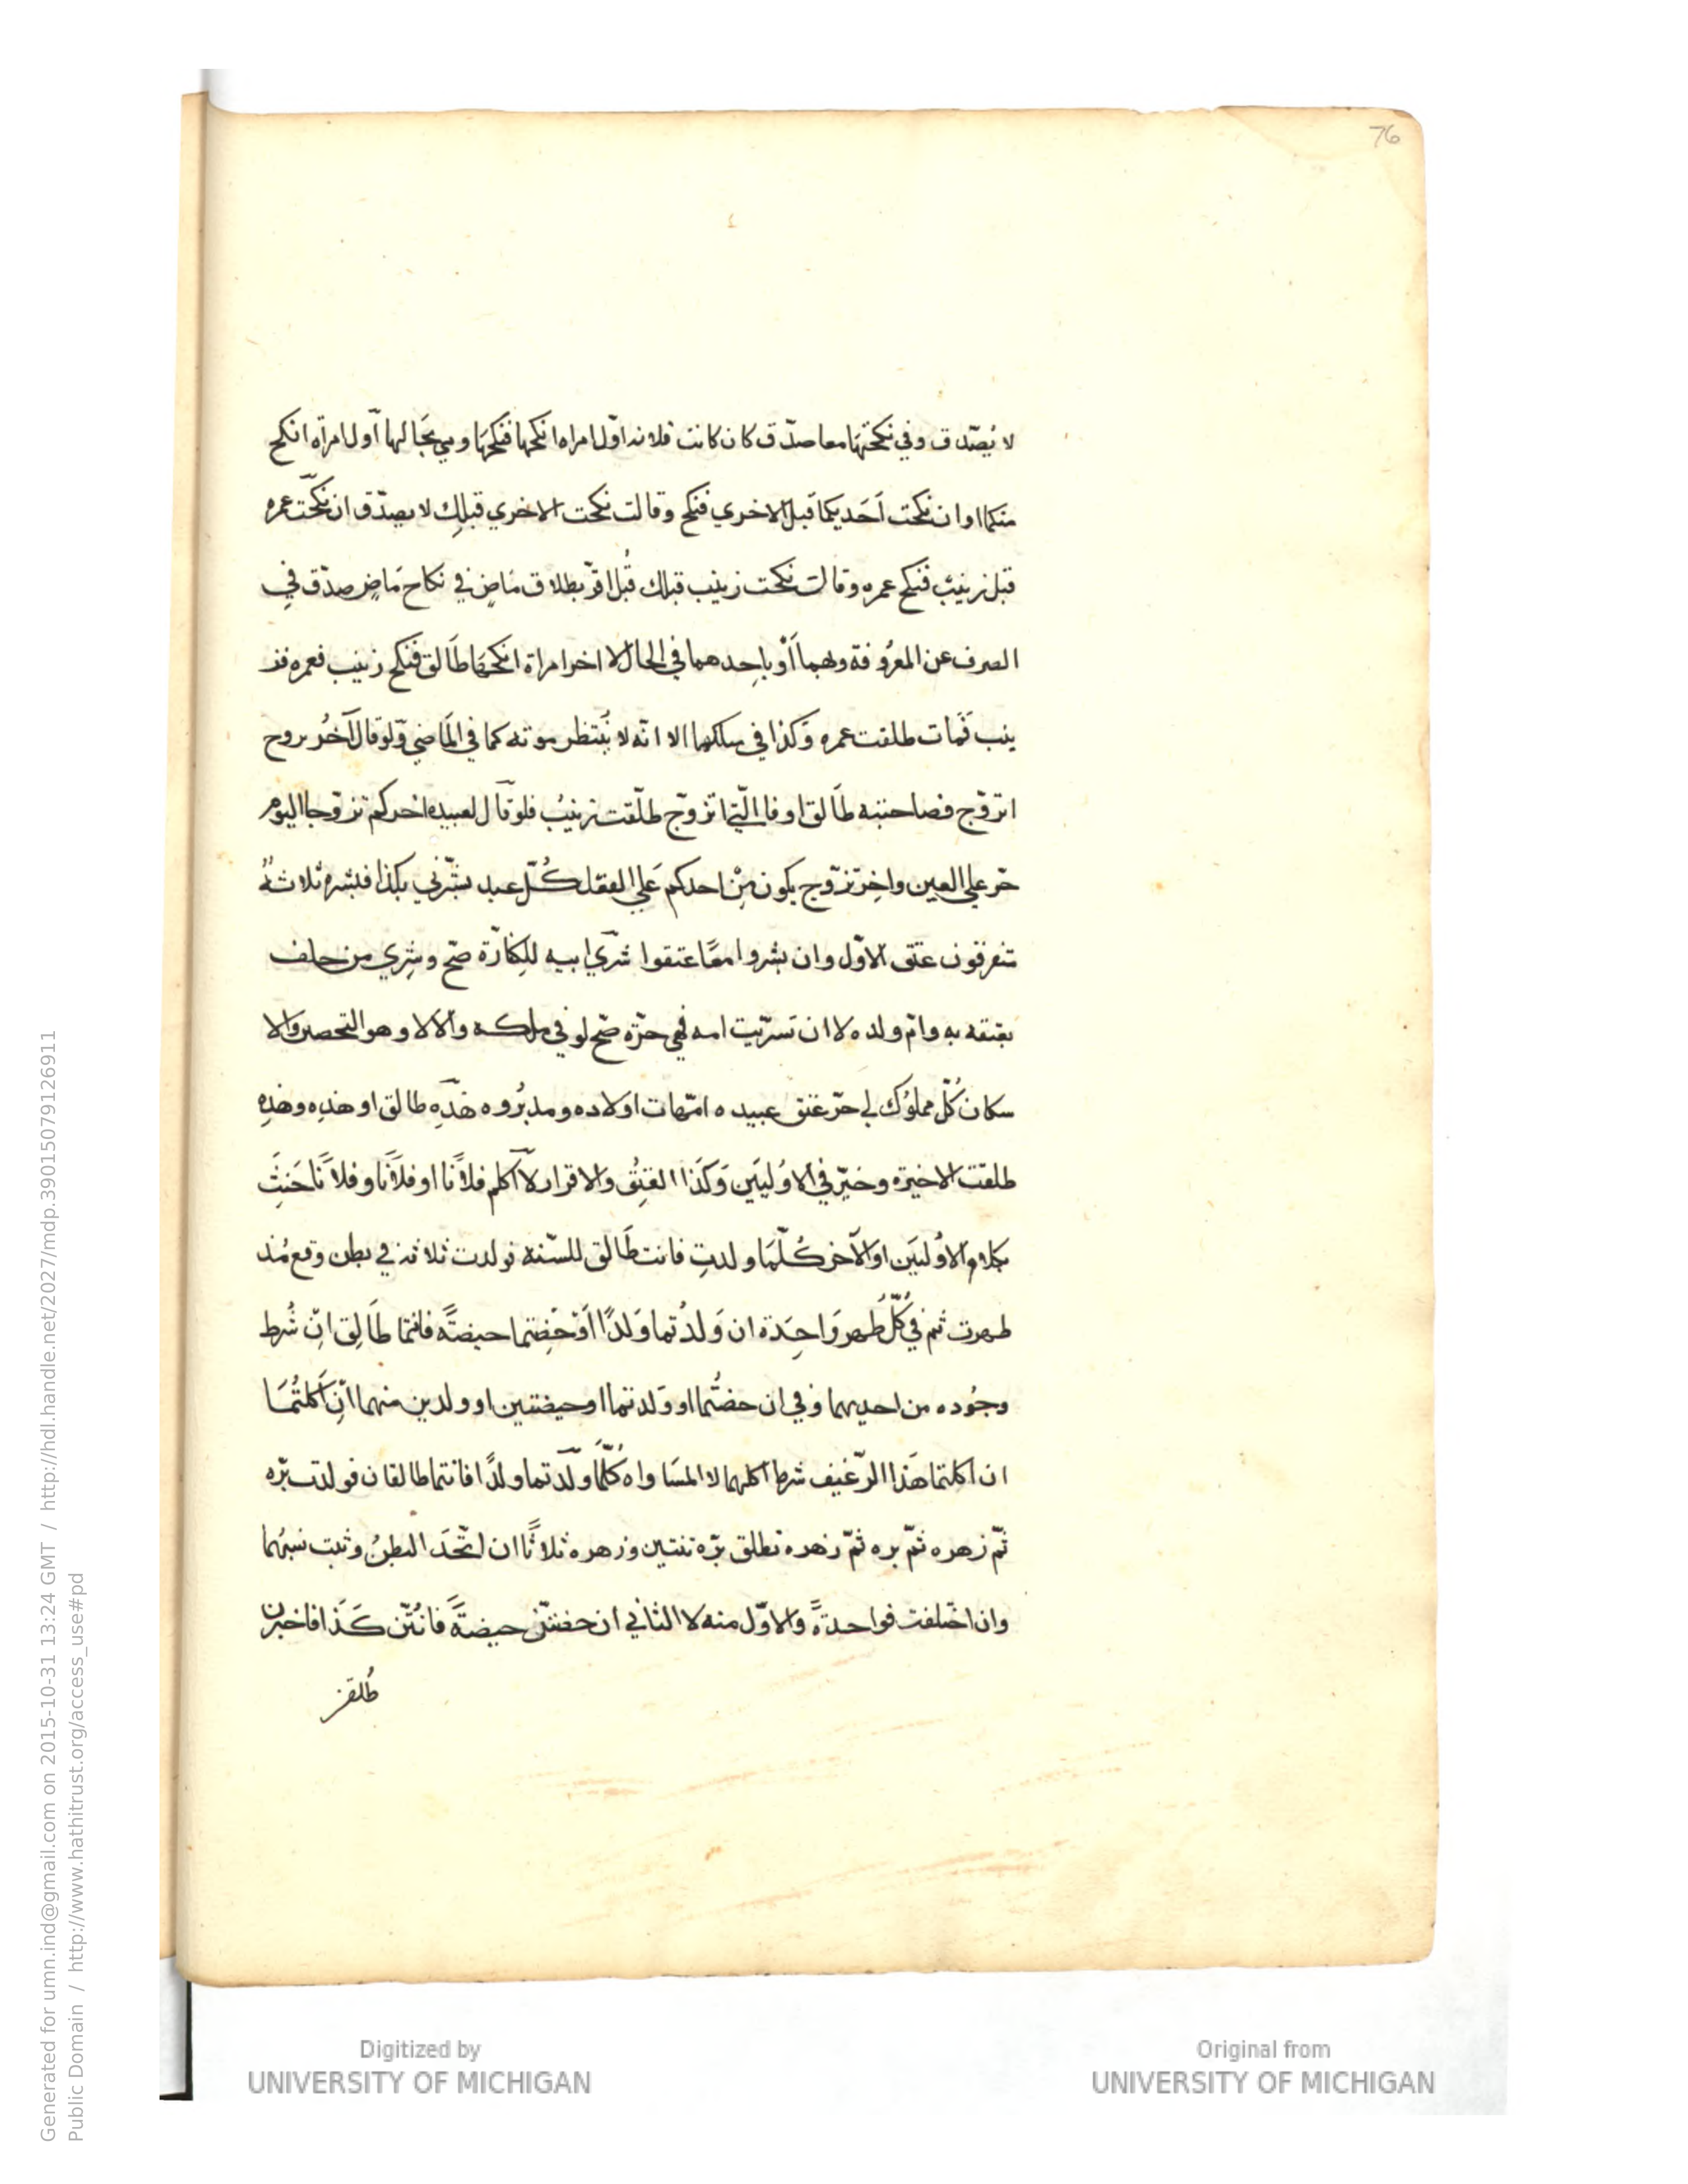 76
لا يُصّدق وفي نكحتهَا معا صدّق كان كانت فلانه اوّل امراه انكحها فنكحهَا وهي بحَالها اَوّل امراه انكح
منكما او ان نكحت اَحَديكما قَبل الاخري فنكح وقالت نكحت الاخري قبلكِ لا يصدّق ان نكحَّت عمره
قبل زينَب فنكح عمره وقالت نكحت زينب قبلك قُبل اقرّ بطلاق مَاضٍ في نكاح مَاضٍ صدّق في
الصرف عن المعرُوفة وبهما اَوْ باِحدهما في الحال لا اخر امراة انكحهَا طَالق فنكح زينب فعمره فز
ينب فَمات طلقت عمره وَكذا في سلكهما الا انّه لا يُنتظر موته كما في المَاضي وَلو قال آخرُ بروح
اتزوّج فصاحبته طَالق او قال الّتي اتزوّج طلّقت زينبُ فلو قَال لعبيده اخركم تزوّجا اليوم
حّر علي العين واخِر تزّوج يكون مِنْ احدكم عَلي الفعل كُلّ عبد بشّرني بكذا فبشره ثلاثةُ
متفرقون عتق الاوّل وان بشروا معًا عتقوا شَرّي ابيه للِكفارّة صحّ وشرِي من حلف
بعتقه بهِ وامّ ولده لا ان تسرّيت امه فهي حرّه صحّ لو في ملكه والا لا وهو التحصين والا
سكان كُلّ مملوك لي حرّ عتق عبيده امّهات اولاده ومدبرُوه هَذِه طالق او هذِه وهذِه
طلقت الاخيَرة وخيّر في الاوُليَين وَكَذا العتقُ والاقرار لا اكلم فلاًنا او فلاَنًا وفلاَنًا حَنثَ
بكلام الاوُليَين او الآخر كُلّمَا ولدتِ فانت طَالق للسّنة فولدت ثلاثة في بطن وقع مُنذ
طهرت ثم في كُلّ طُهر وَاحِدَة ان وَلدُتما وَلدًا اَوْ حَضِتما حيضتًه فانتما طَالِق انِّ شُرط
وجُوده من احديهما وفي ان حضتُما او وَلدتما او حيضتين او ولدين منهما انّ اَكلتُمَا
ان اكلتما هَذا الرّغيف شرط اكلهما لا المسَاواه كُلّمَا ولَدّتما ولدًا فانتما طالقان فولدت برّه
ثمّ زهره ثمّ بره ثمّ زهره تطلق برّه ثنتين وزهره ثلاثًا ان اتّحَد البطنُ وثبت نسبُهما
وان اختلفت فواحدةً والاوّل منه لا الثاني ان حضتنّ حيضةً فانتُنّ كَذا فاخبرن
طُلقن
Generated for umn.ind@gmail.com on 2015-10-31 13:24 GMT / http://hdl.handle.net/2027/mdp.39015079126911
Public Domain / http://www.hathitrust.org/access_use#pd
Digitized by
UNIVERSITY OF MICHIGAN
Original from
UNIVERSITY OF MICHIGAN